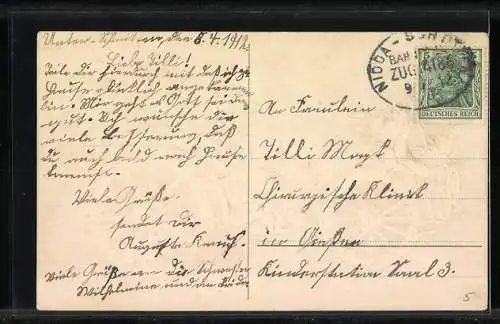 Unter-Schmitten, den 8.4.1912.
Liebe Tilli!
Teile dir hierdurch mit daß ich zu
Hause glücklich angekommen
bin. Mir geht es Gott sei Dank
gut. Ich wünsche dir
viele Besserung, daß
du auch bald nach Hause
kannst.
Viele Grüße
sendet dir
Auguste
Viele Grüße an die Schwester
Wilhelmine und die Frieda
NIDDA -
BAH
ZUG
9
DEUTSCHES REICH
An Fräulein
Tilli
Chirurgische Klinik
in Gießen
Kinderstation Saal 3.
5